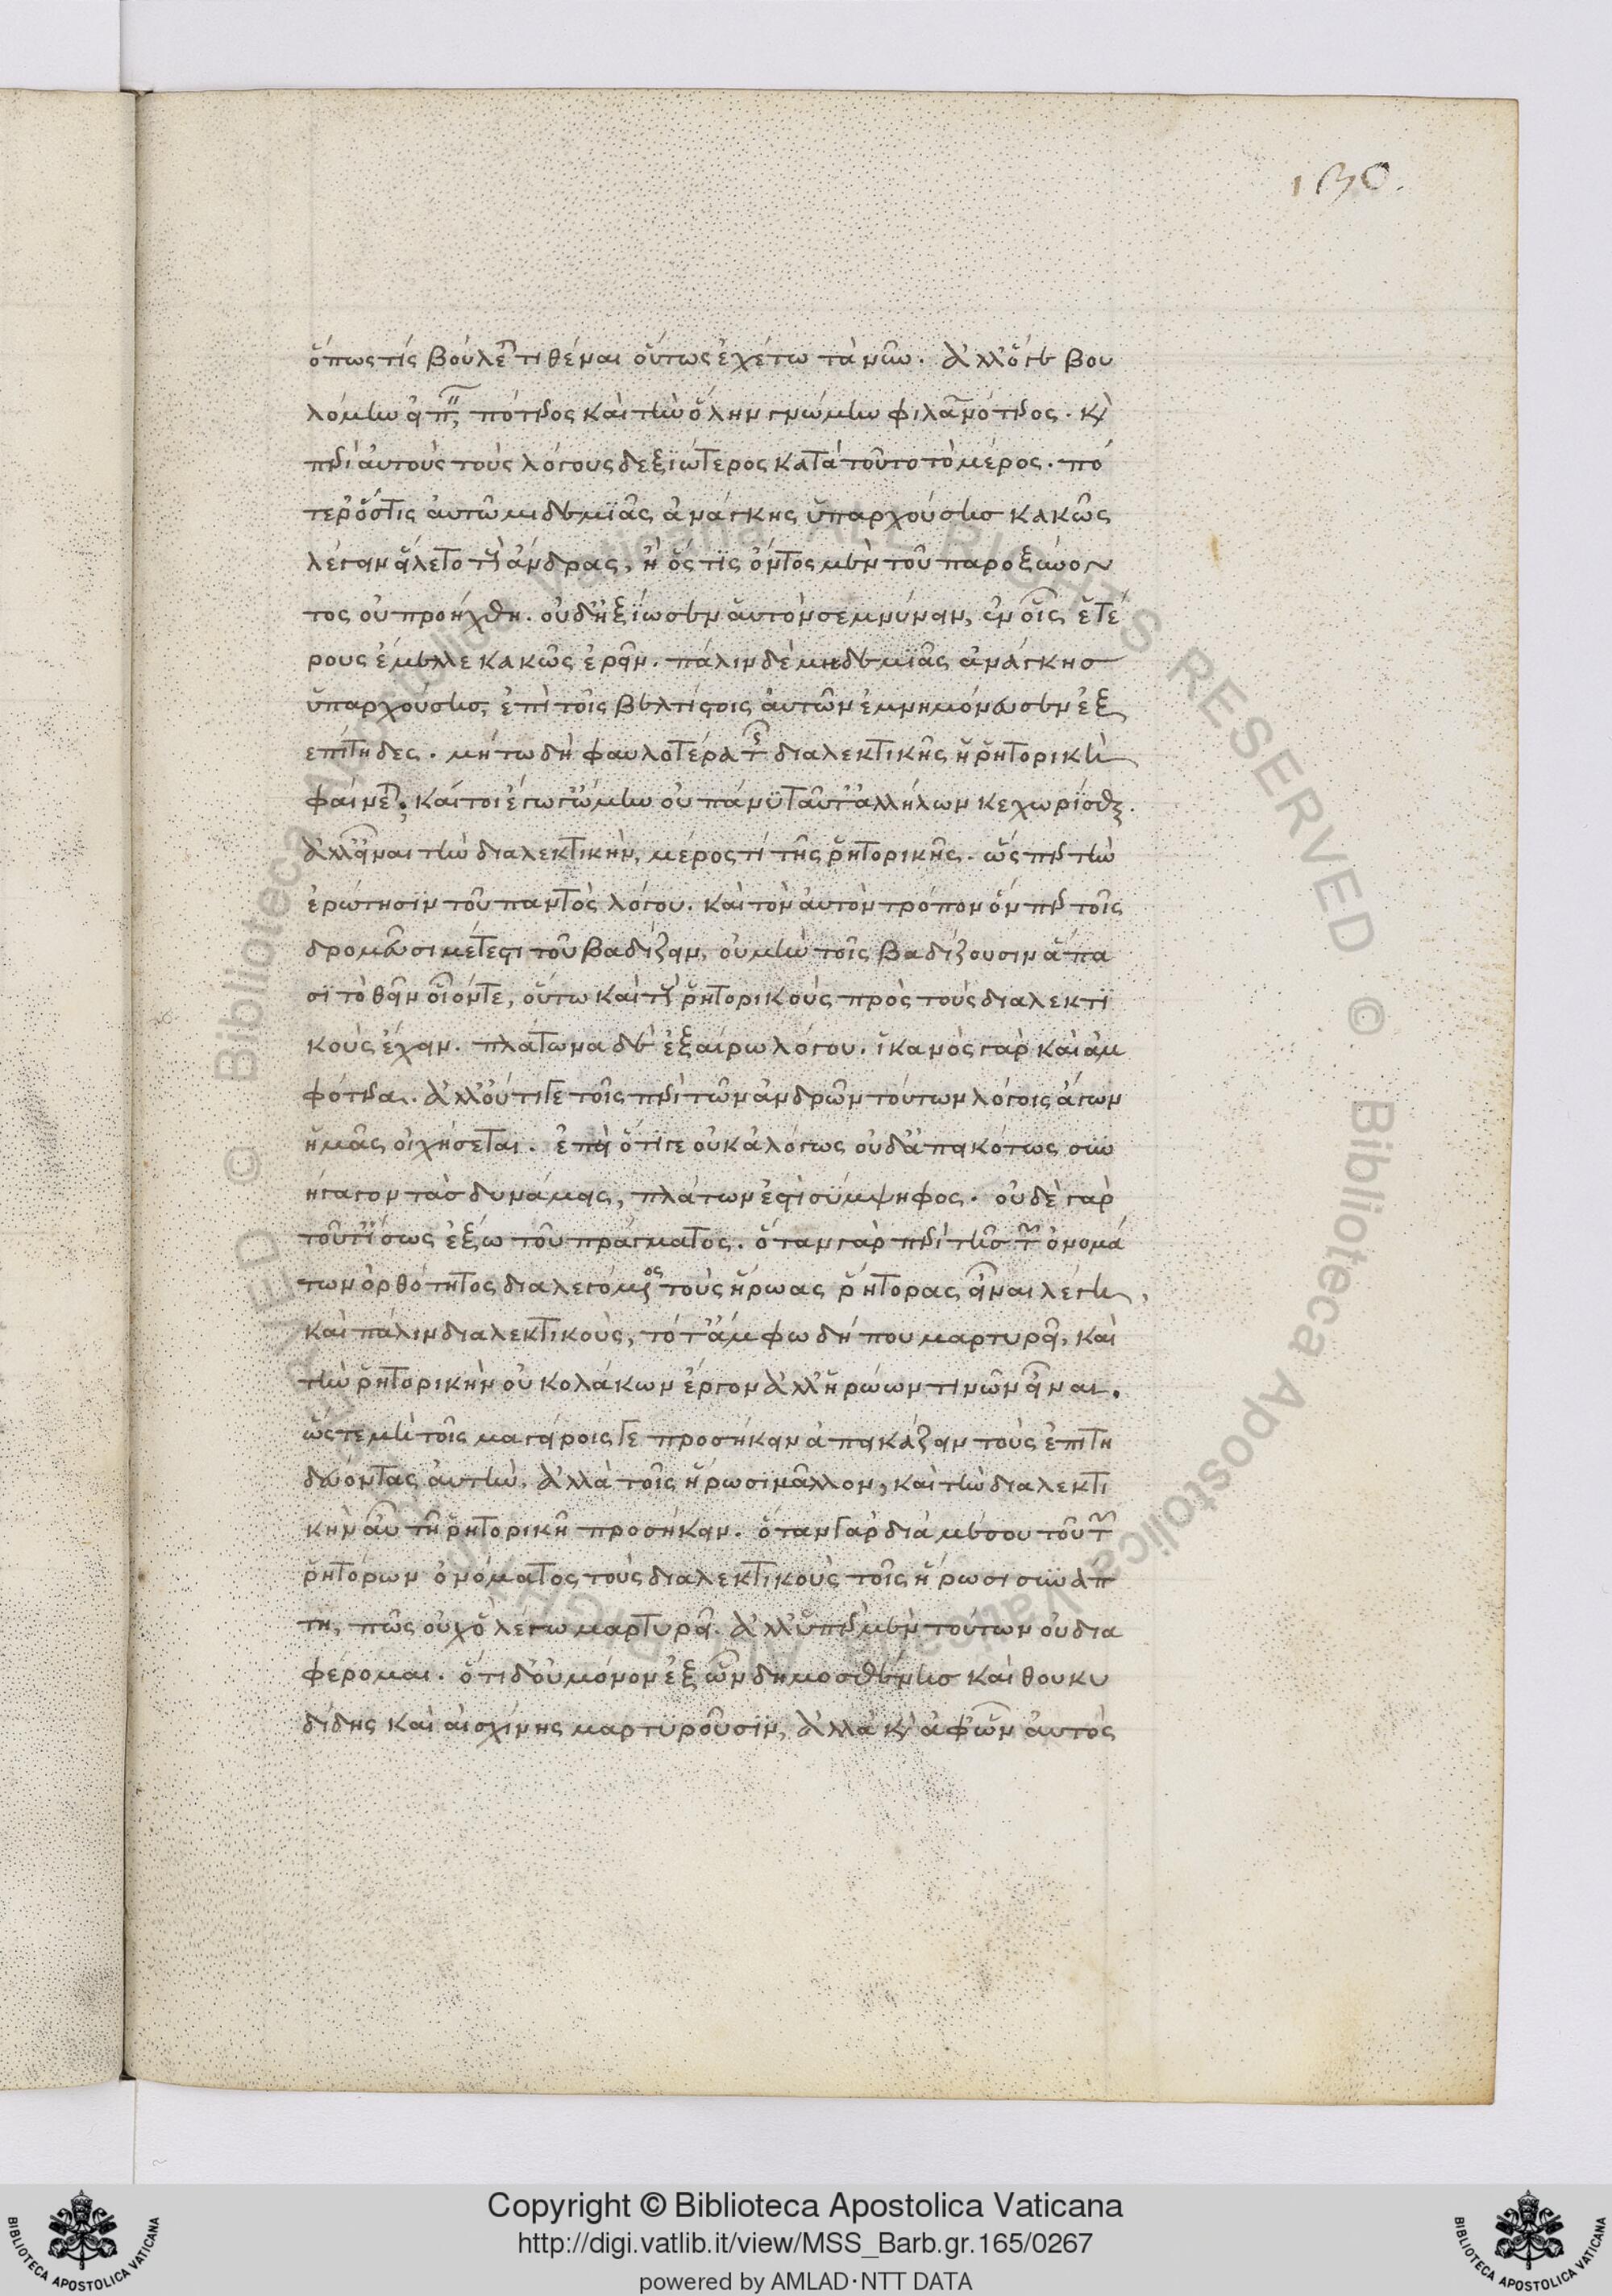 ὅπως τίς βούλεται τιθέναι οὕτως ἐχέτω τὰ νῦν. ἀλλ' ὅ γε βου
λόμην εἰπεῖν, πότερος καὶ τὴν ὅλην γνώμην φιλανθρωπότερος. καὶ
περὶ αὐτοὺς τοὺς λόγους δεξιώτερος κατὰ τοῦτο τὸ μέρος. πό
τερ' ὅστις αὐτῶν μηδεμιᾶς ἀνάγκης ὑπαρχούσης κακῶς
λέγειν εἵλετο τοὺς ἄνδρας, ἢ ὅς τις ὄντος μὲν τοῦ παροξύνον
τος οὐ προήχθη. οὐδ' ἠξίωσεν αὑτὸν σεμνύνειν, ἐν οἷς ἑτέ
ρους ἔμελλε κακῶς ἐρεῖν. πάλιν δὲ μηδεμιᾶς ἀνάγκησ
ὑπαρχούσης, ἐπὶ τοῖς βελτίστοις αὐτῶν ἐμνημόνευσεν ἐξ
επίτηδες. μήτω δὴ φαυλοτέρα τῆς διαλεκτικῆς ἡ ῥητορικὴ
φαίνεται. καίτοι ἔγωγ' ᾤμην οὐ πάνυ ταῦτ' ἀλλήλων κεχωρίσθαι.
ἀλλ' εἶναι τὴν διαλεκτικὴν, μέρος τὶ τῆς ῥητορικῆς. ὥς περ τὴν
ἐρώτησιν τοῦ παντὸς λόγου. καὶ τὸν αὐτὸν τρόπον ὅν περ τοῖς
δρομεῦσι μέτεστι τοῦ βαδίζειν, οὐ μὴν τοῖς βαδίζουσιν ἅπα
σι τὸ θεῖν οἷόν τε, οὕτω καὶ τοὺς ῥητορικοὺς πρὸς τοὺς διαλεκτι
κοὺς ἔχειν. πλάτωνα δὲ ἐξαίρω λόγου. ἱκανὸς γὰρ καὶ ἀμ
φότερα. ἀλλ' οὔτι γε τοῖς περὶ τῶν ἀνδρῶν τούτων λόγοις ἄγων
ἡμᾶς οἰχήσεται. ἐπεὶ ὅτί γε οὐκ ἀλόγως οὐδ' ἀπεικότως συν
ήγαγον τὰσ δυνάμεις, πλάτων ἐστὶ σύμψηφος. οὐδὲ γὰρ
τοῦτ' ἴσως ἔξω τοῦ πράγματος. ὅταν γὰρ περὶ τῆς τῶν ὀνομά
των ὀρθότητος διαλεγόμενος τοὺς ἥρωας ῥήτορας εἶναι λέγῃ,
καὶ πάλιν διαλεκτικοὺς, τότ' ἄμφω δή που μαρτυρεῖ, καὶ
τὴν ῥητορικὴν οὐ κολάκων ἔργον ἀλλ' ἡρώων τινῶν εἶναι.
ὥς τε μὴ τοῖς μαγείροις γε προσήκειν ἀπεικάζειν τοὺς ἐπιτη
δεύοντας αὐτὴν. ἀλλὰ τοῖς ἥρωσι μᾶλλον, καὶ τὴν διαλεκτι
κὴν αὖ τῇ ῥητορικῇ προσήκειν. ὅταν γὰρ διὰ μέσου τοῦ τῶν
ῥητόρων ὀνόματος τοὺς διαλεκτικοὺς τοῖς ἥρωσι συνάπ
τῃ, πῶς οὐχ ὃ λέγω μαρτυρεῖ. ἀλλ' ὑπὲρ μὲν τούτων οὐ δια
φέρομαι. ὅτι δ' οὐ μόνον ἐξ ὧν δημοσθένης καὶ θουκυ
δίδης καὶ αἰσχίνης μαρτυροῦσιν, ἀλλὰ καὶ ἀφ' ὧν αὐτὸς
130.
Copyright © Biblioteca Apostolica Vaticana
http://digi.vatlib.it/view/MSS_Barb.gr.165/0267
powered by AMLAD·NTT DATA